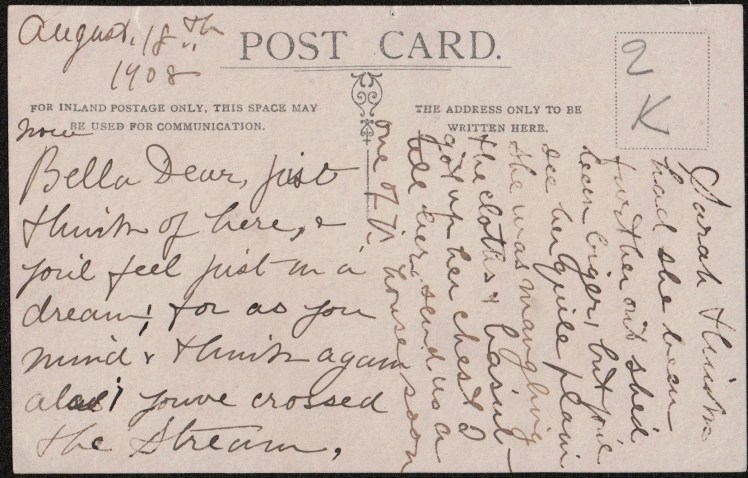 August. 18th
1908
POST CARD.
2
K
FOR INLAND POSTAGE ONLY, THIS SPACE MAY
BE USED FOR COMMUNICATION.
THE ADDRESS ONLY TO BE
WRITTEN HERE.
now
Bella Dear, just
think of here, &
you'l feel just in a
dream; for as you
mind & think again
alas! youve crossed
the Stream,
Sarah thinks
had she been
further out shed
been biger, but you'l
see her quite plain
she was mangling
the cloths &
got up her chest &
her, send us a
one of th houses soon